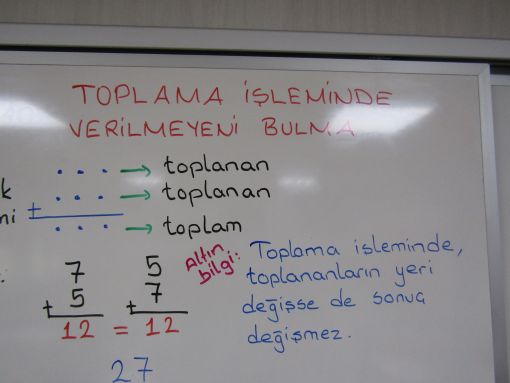 TOPLAMA İŞLEMİNDE
VERİLMEYENİ BULMA
. . . → toplanan
k . . . → toplanan
mi +
. . . → toplam
7 5
+ 5 + 7
12 = 12
Altın bilgi:
Toplama işleminde,
toplananların yeri
değişse de sonuç
değişmez.
27